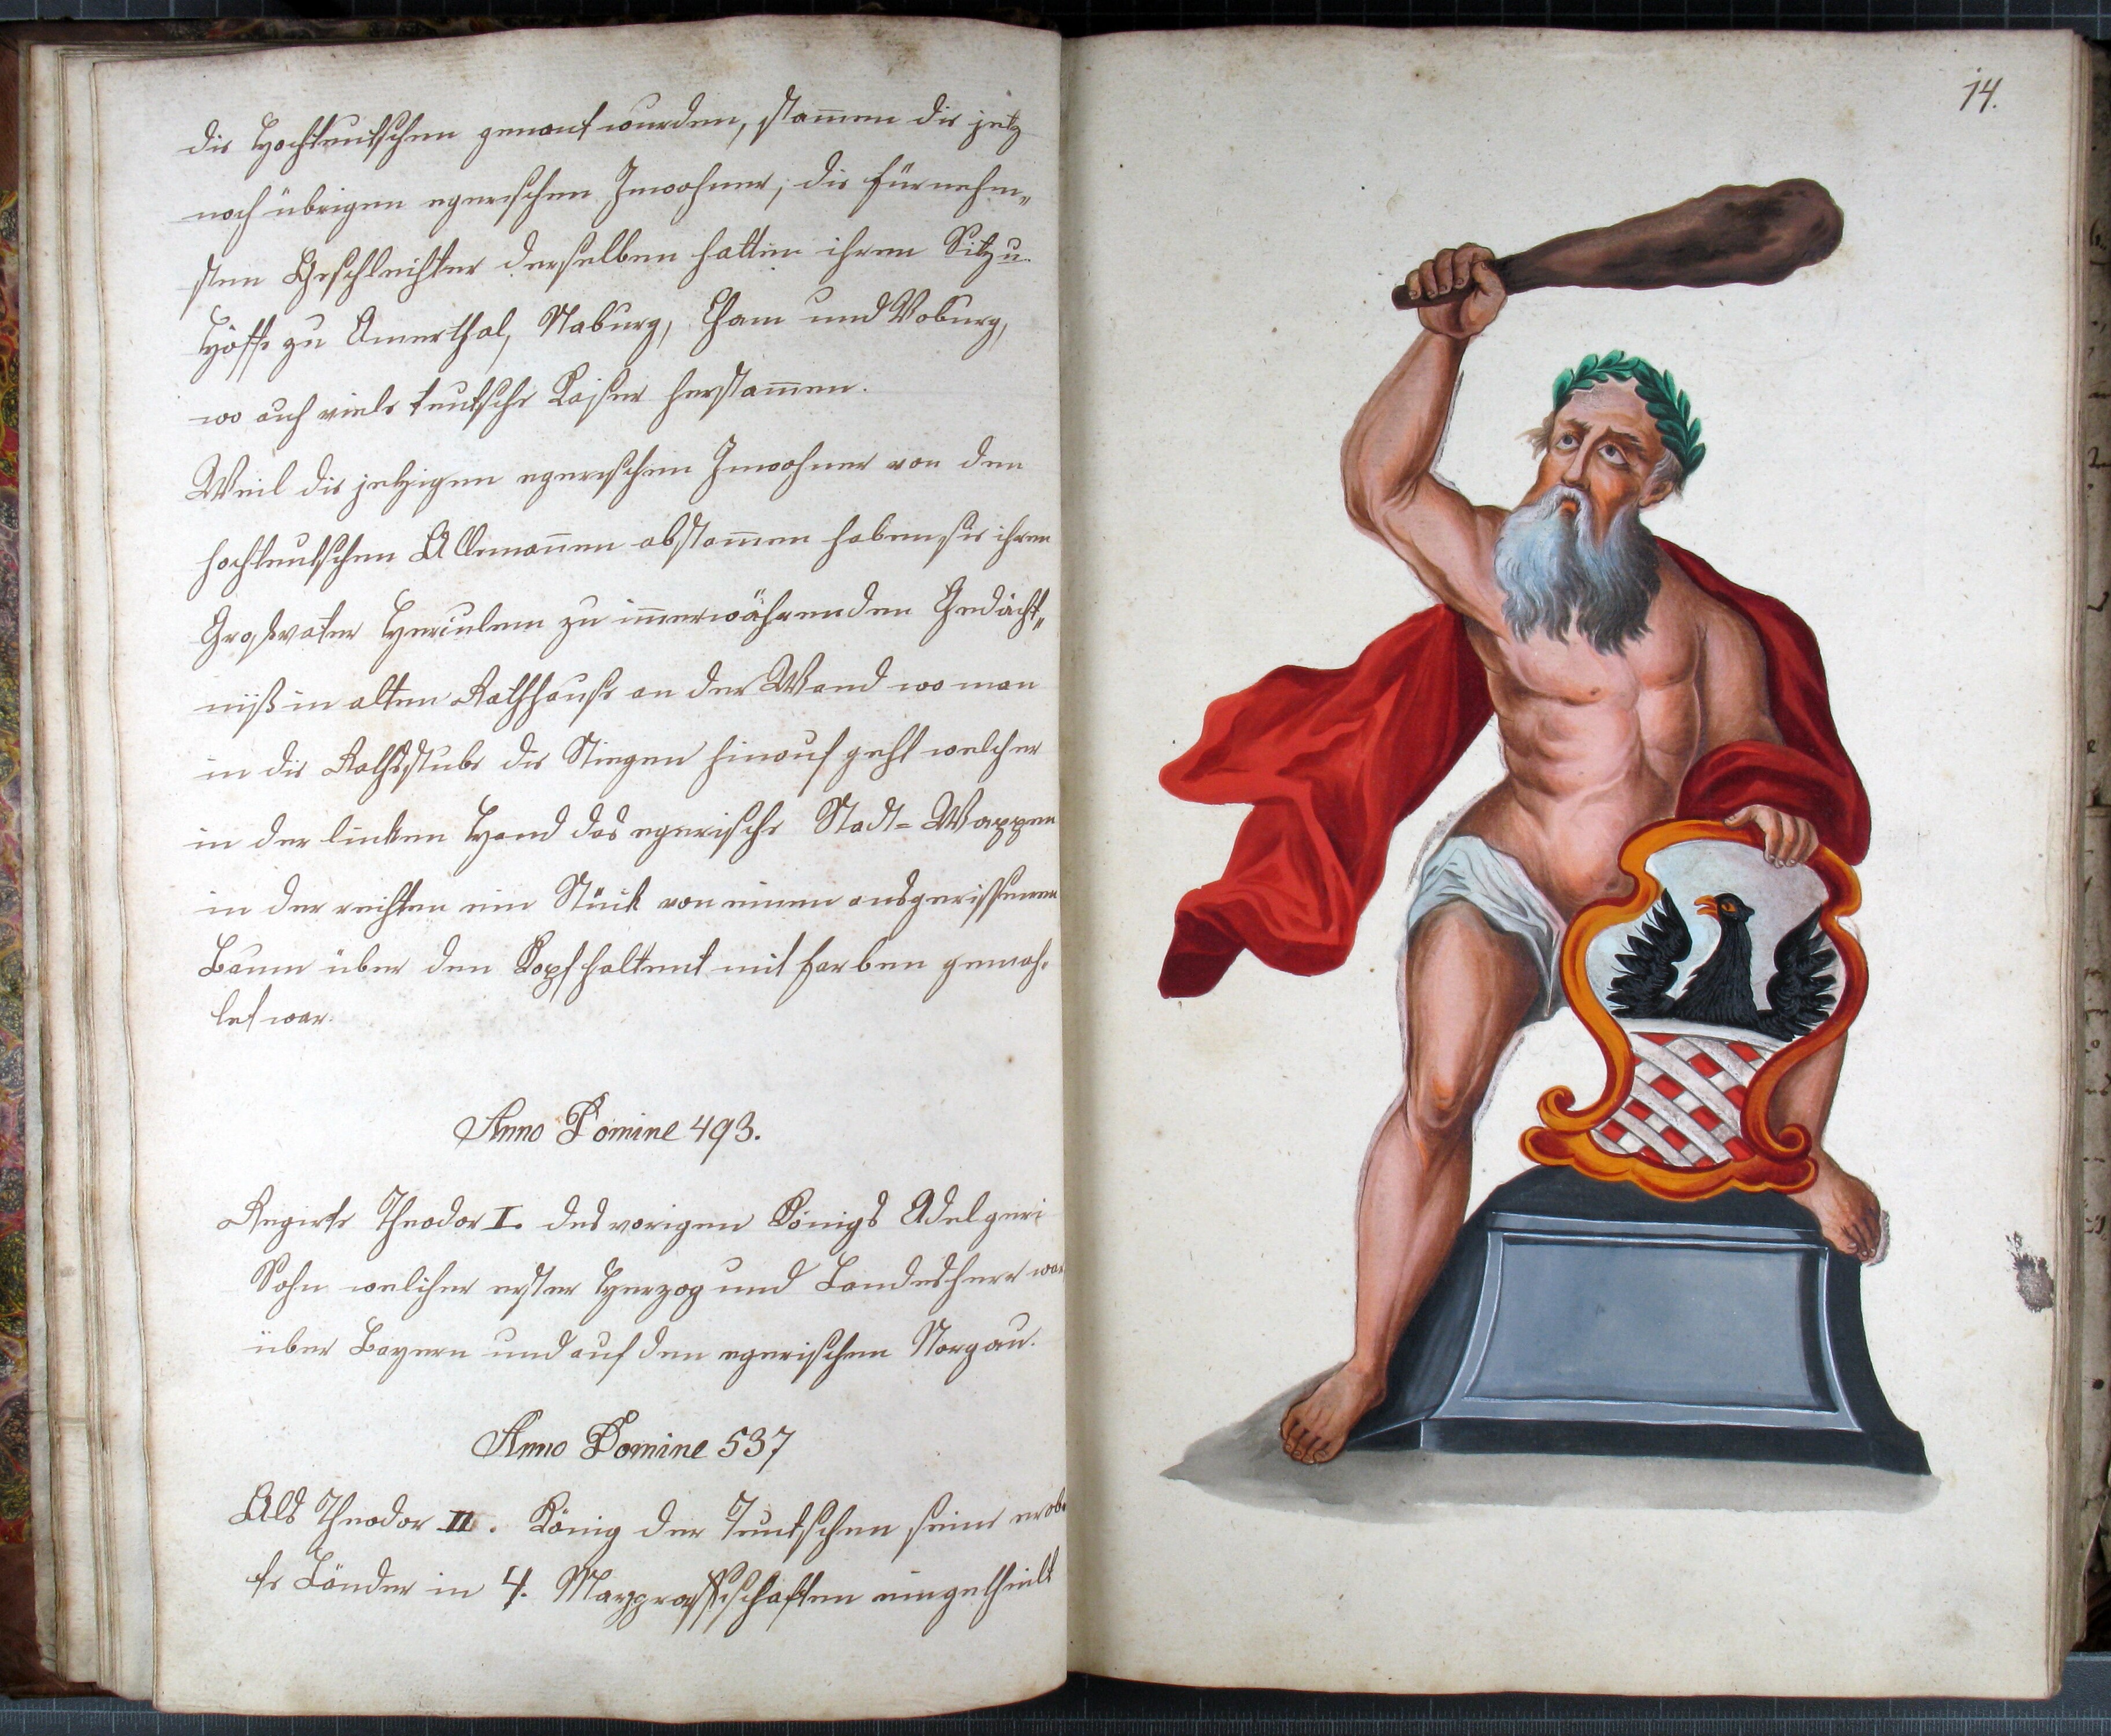 die Hochteutschen genant wurden, stam̄en die jetz
noch übrigen egerischen Inwohner, die fürnehm„
sten Geschlechter derselben hatten ihren Sitz u.
Höffe zu Amerthal, Naburg, Cham und Voburg,
wo auch viele teutsche Kaiser herstam̄en.
Weil die jetzigen egerischen Inwohner von den
hochteutschen Alleman̄en abstam̄en haben sie ihren
Großvater Herculem zu im̄erwährenden Gedächt„
niß in alten Rathhauße an der Wand wo man
in die Rathsstube die Stiegen hinauf geht welcher
in der linken Hand das egerische Stadt= Wappen
in der rechten ein Stück von einen ausgerissenen
Baum über den Kopf haltent mit farben gemah„
let war.
Anno Domine 493.
Regirte Theodor I. des vorigen Königs Adelgeri
Sohn welcher erster Herzog und Landesherr war
über Bayern und auf den egerischen Norgau.
Anno Domine 537
Als Theodor II. König der Teutschen seine
te Länder in 4. Marggraffschaften eingetheilt
14.